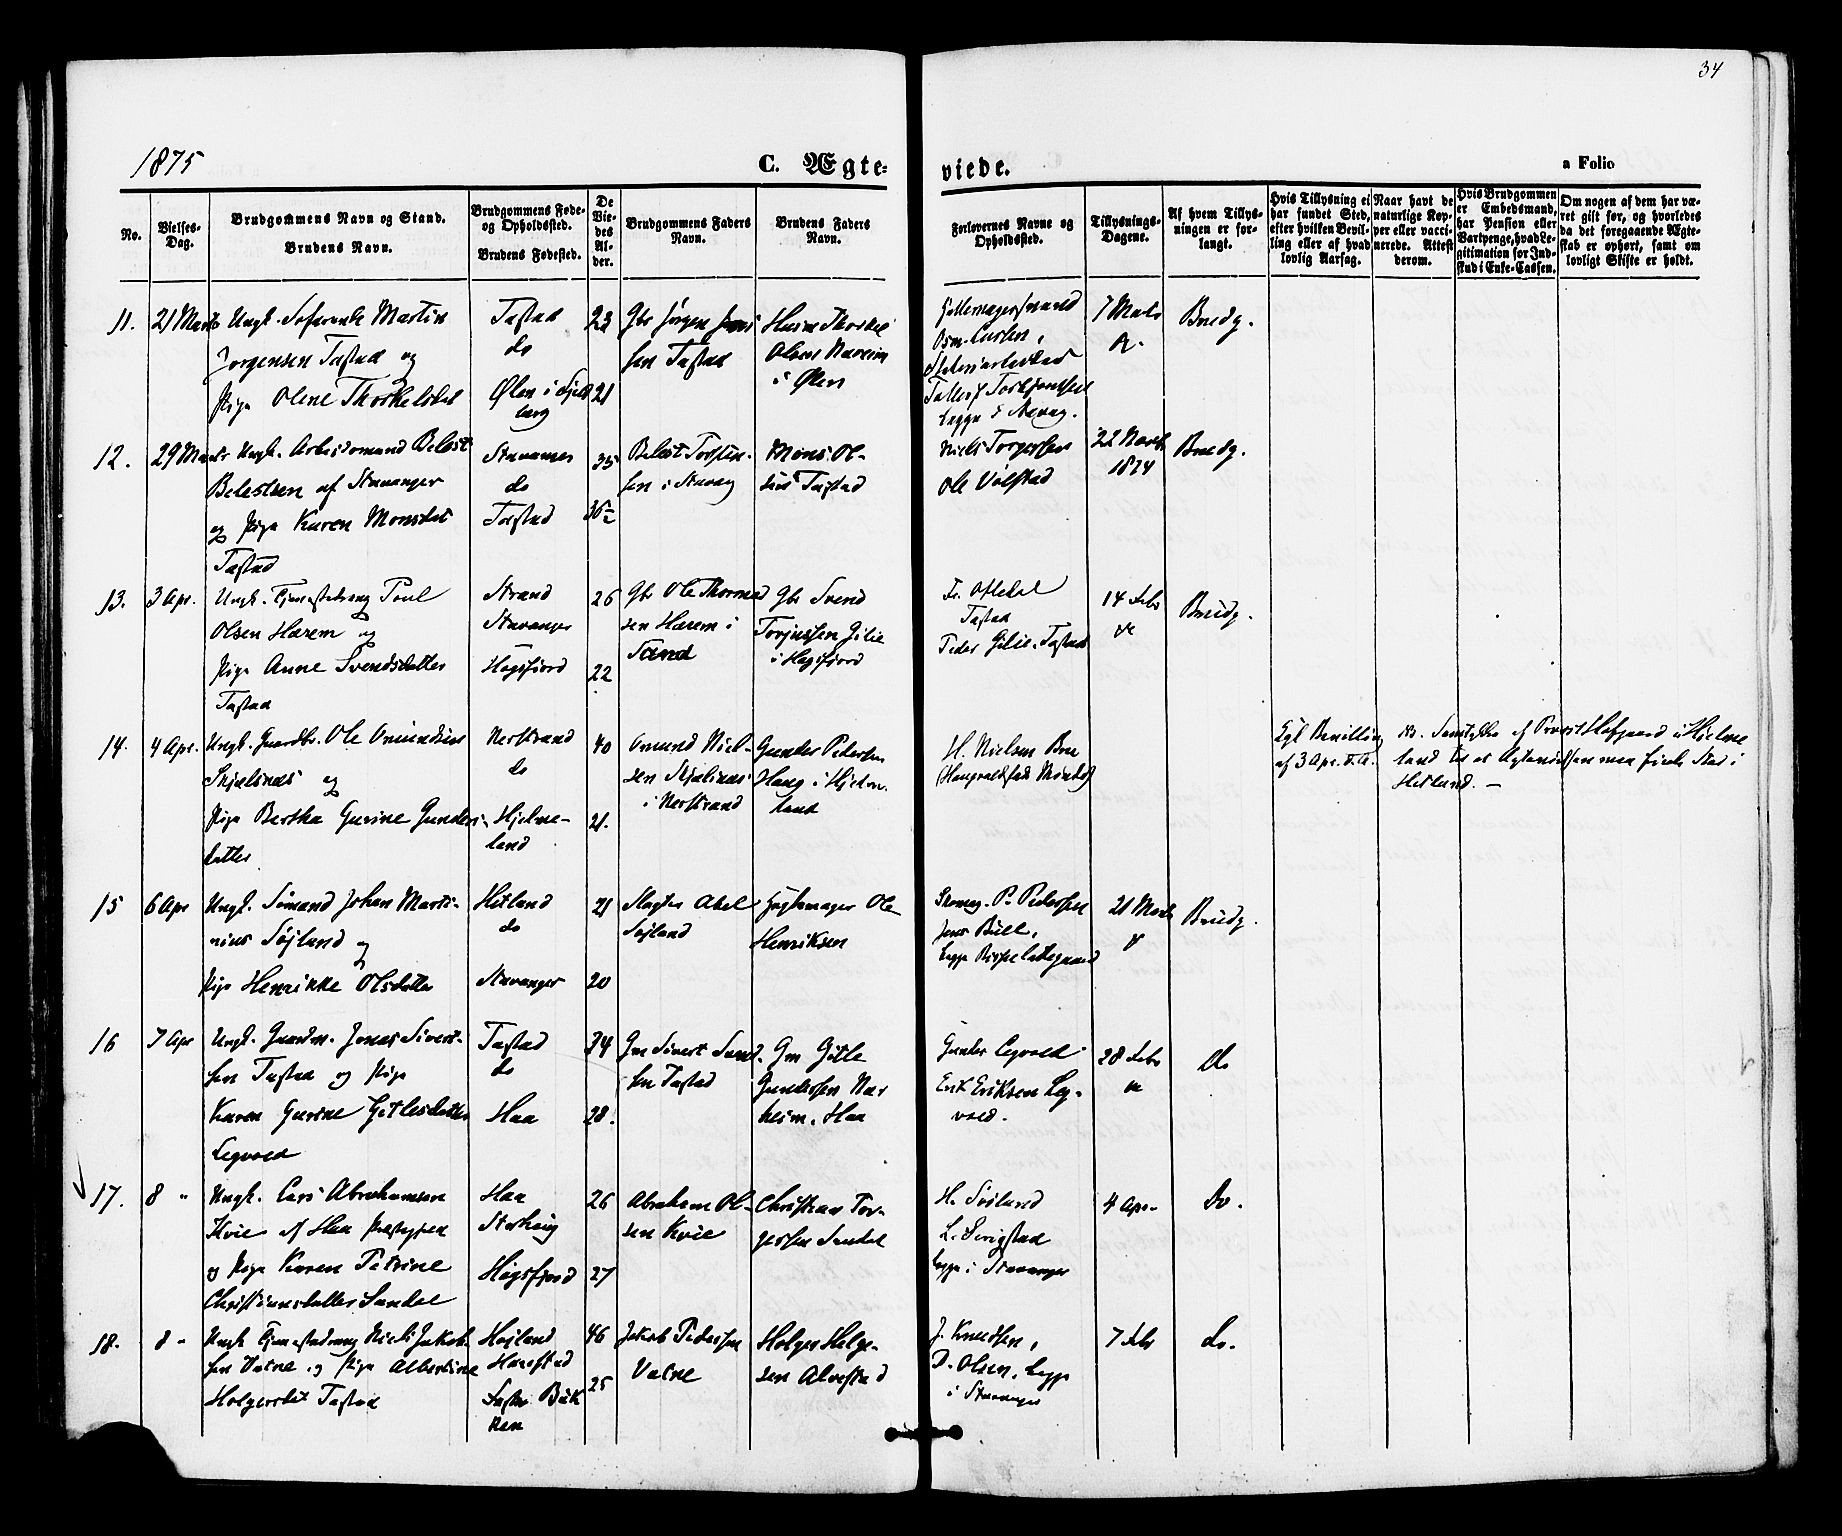 34
1875
C. Ægte-
viede.
a Folio
No.
Vielses-
Dag.
Brudgommens Navn og Stand.
Brudens Navn.
Brudgommens Føde-
og Opholdssted.
Brudens Fødested.
De
Vie-
des
Al-
der.
Brudgommens Faders
Navn.
Brudens Faders
Navn.
Forlovernes Navne og
Opholdssted.
Tillysnings-
Dagene.
Af hvem Tillys-
ningen er for-
langt.
Hvis Tillysning ei
har fundet Sted,
efter hvilken Bevil-
ling eller af hvad
lovlig Aarsag.
Naar havt de
naturlige Kop-
per eller vacci-
nerede. Attest
derom.
Hvis Brudgommen
er Embedsmand,
har Pension eller
Vartpenge, hvad Le-
gitimation for Ind-
skud i Enke-Cassen.
Om nogen af dem har væ-
ret gift før, og hvorledes
da det foregaaende Ægte-
skab er ophørt, samt om
lovligt Skifte er holdt.
11.
21 Marts
Ungk. Martin
Jørgensen Tastad og
Pige Olene Thorkelsdat
Tastad
do
Ølen i
21
Gbr Jørgen
sen Tastad
Husm Thorkel
Olsen
i Ølen
7 Marts
Brudg.
12.
29 Marts
Ungk. Arbeidsmand Belest
Belestsen af Stavanger
og Pige Karen Monsdat
Tastad
Stavanger
do
Tastad
35
36
Belest Torsten-
sen i Stavang
Mons Ol-
sen Tastad
Niels Torgersen
Ole Volstad
22 Novb
1874
Brudg.
13.
3 Apr.
Ungk. Poul
Olsen Hærem og
Pige Anne Svendsdatter
Tastad
Strand
Stavanger
Høgsfjord
26
22
Gbr Ole Thormod
sen Hærem i
Gbr Svend
Torjussen Gilie
i Høgsfjord
Tastad
Peder Gilie, Tastad
14 Febr
Brudg.
14.
4 Apr.
Ungk. Gaardbr. Ole Omundsen
Skjelsnæs og
Pige Bertha Gurine Gunders-
datter
Nerstrand
do
Hjelme-
land
40
21.
Omund Niel-
sen Skjelsnæs
i Nerstrand
Gunder Pedersen
Haug i Hjelme
land
H. Nielsen Bru
Kgl Bevilling
af 3 Apr. d.A.
NB. Samtykke af Provst Hofgaard i Hjelme
land til at Ægtevielsen maa finde Sted i
Hetland. —
15
6 Apr
Ungk. Sømand Johan Marti-
nius Søyland og
Pige Henrikke Olsdatter
Hetland
do
Stavanger
21
20
Slagter Abel
Søyland
Ole
Henriksen
P. Pedersen
Jens Bull,
21 Marts
Brudg.
16
7 Apr
Ungk. Gaardm. Jonas Sivert-
sen Tastad og Pige
Karen Gurine Gitlesdatter
Legvold
Tastad
do
Haa
34
28.
Gm Sivert
sen Tastad
Gm Gitle
Gundersen Nær
heim, Haa
Gunder Legvold
Erik Eriksen Leg-
vold.
28 Febr
Do
17.
8 "
Ungk. Lars Abrahamsen
Kvie af Haa
og Pige Karen Petrine
Christiansdatter Sandal
Haa
Høgsfjord
26
27
Abraham Ol-
sen Kvie
Christian Tor-
gersen Sandal
H. Søiland
L. Serigstad
begge i Stavanger
4 Apr.
Do.
18.
8 "
Ungk Niels Jakob-
sen Vatne og Pige Albertine
Holgersdat Tastad
Høiland
46
25
Jakob Pedersen
Vatne
Holger Helge-
sen Alvestad
J. Knudsen,
D. Olsen, begge
i Stavanger
7 Febr
Do.